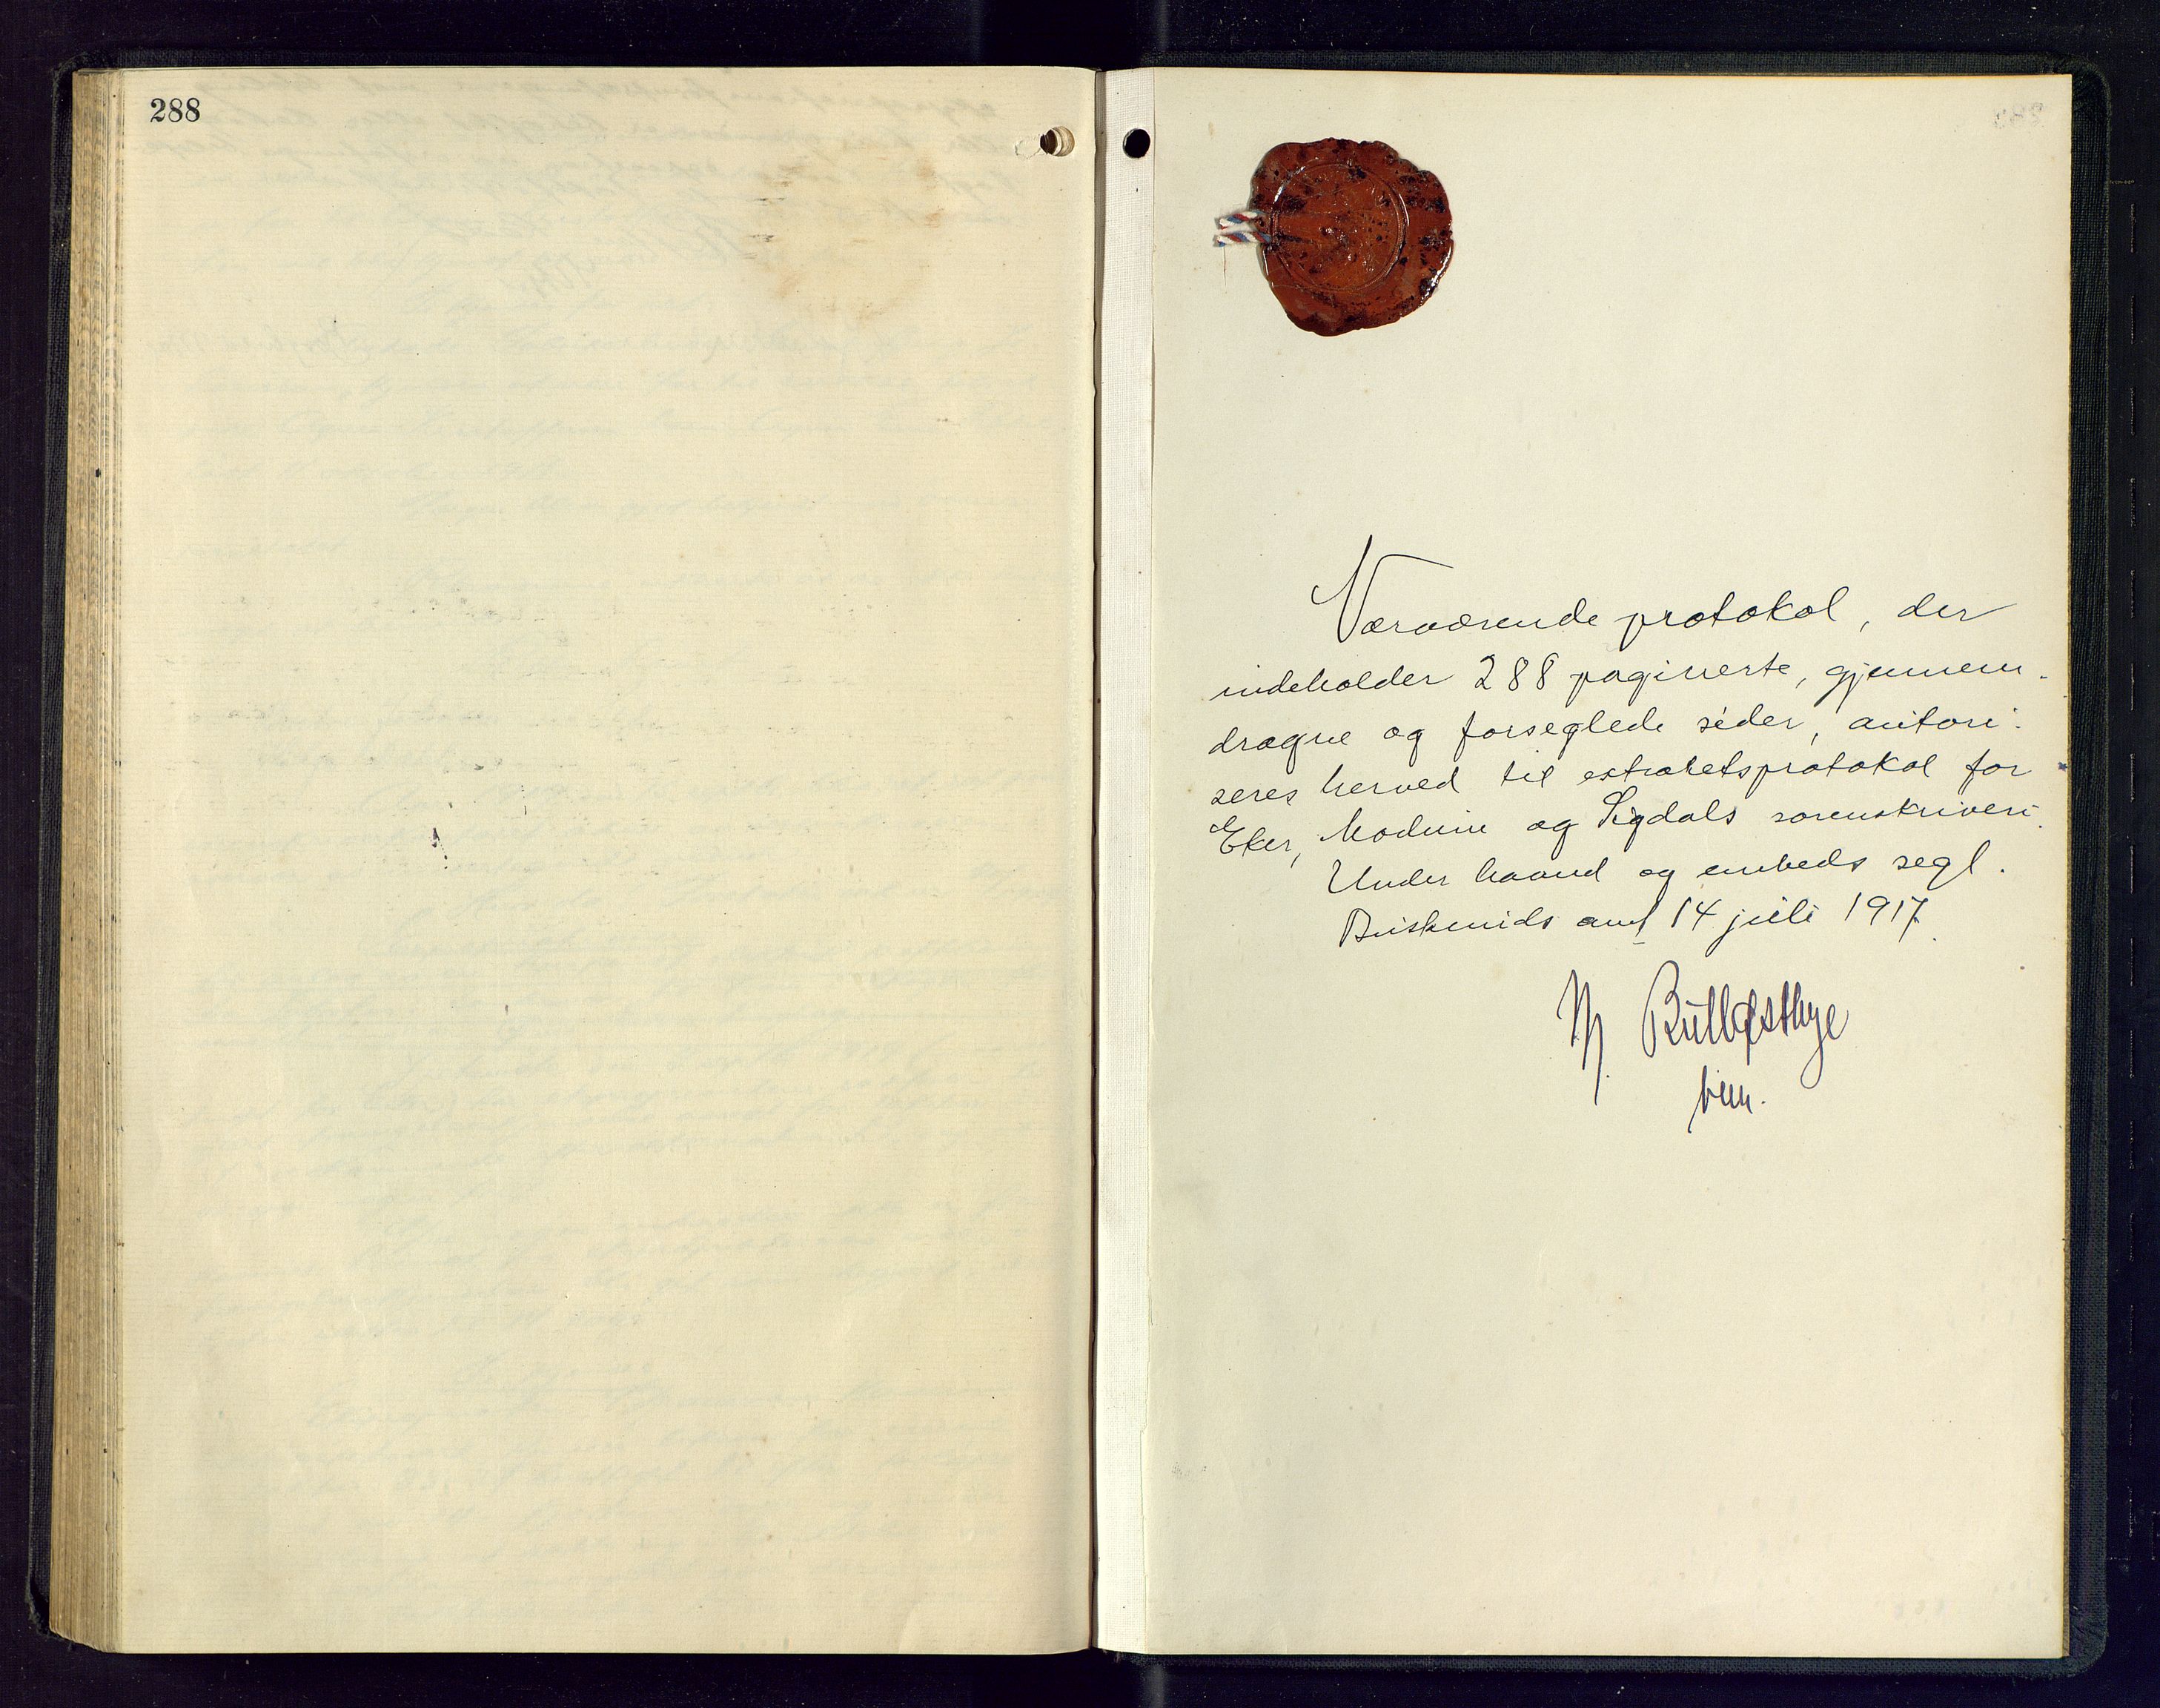 288
Værværende protokol, der
indeholder 288 paginerte, gjennem-
dragne og forseglede sider, autori-
seres herved til extraretsprotokol for
Eker, Modum og Sigdals sorenskriveri.
Under haand og embeds segl.
Buskeruds amt 14 juli 1917.